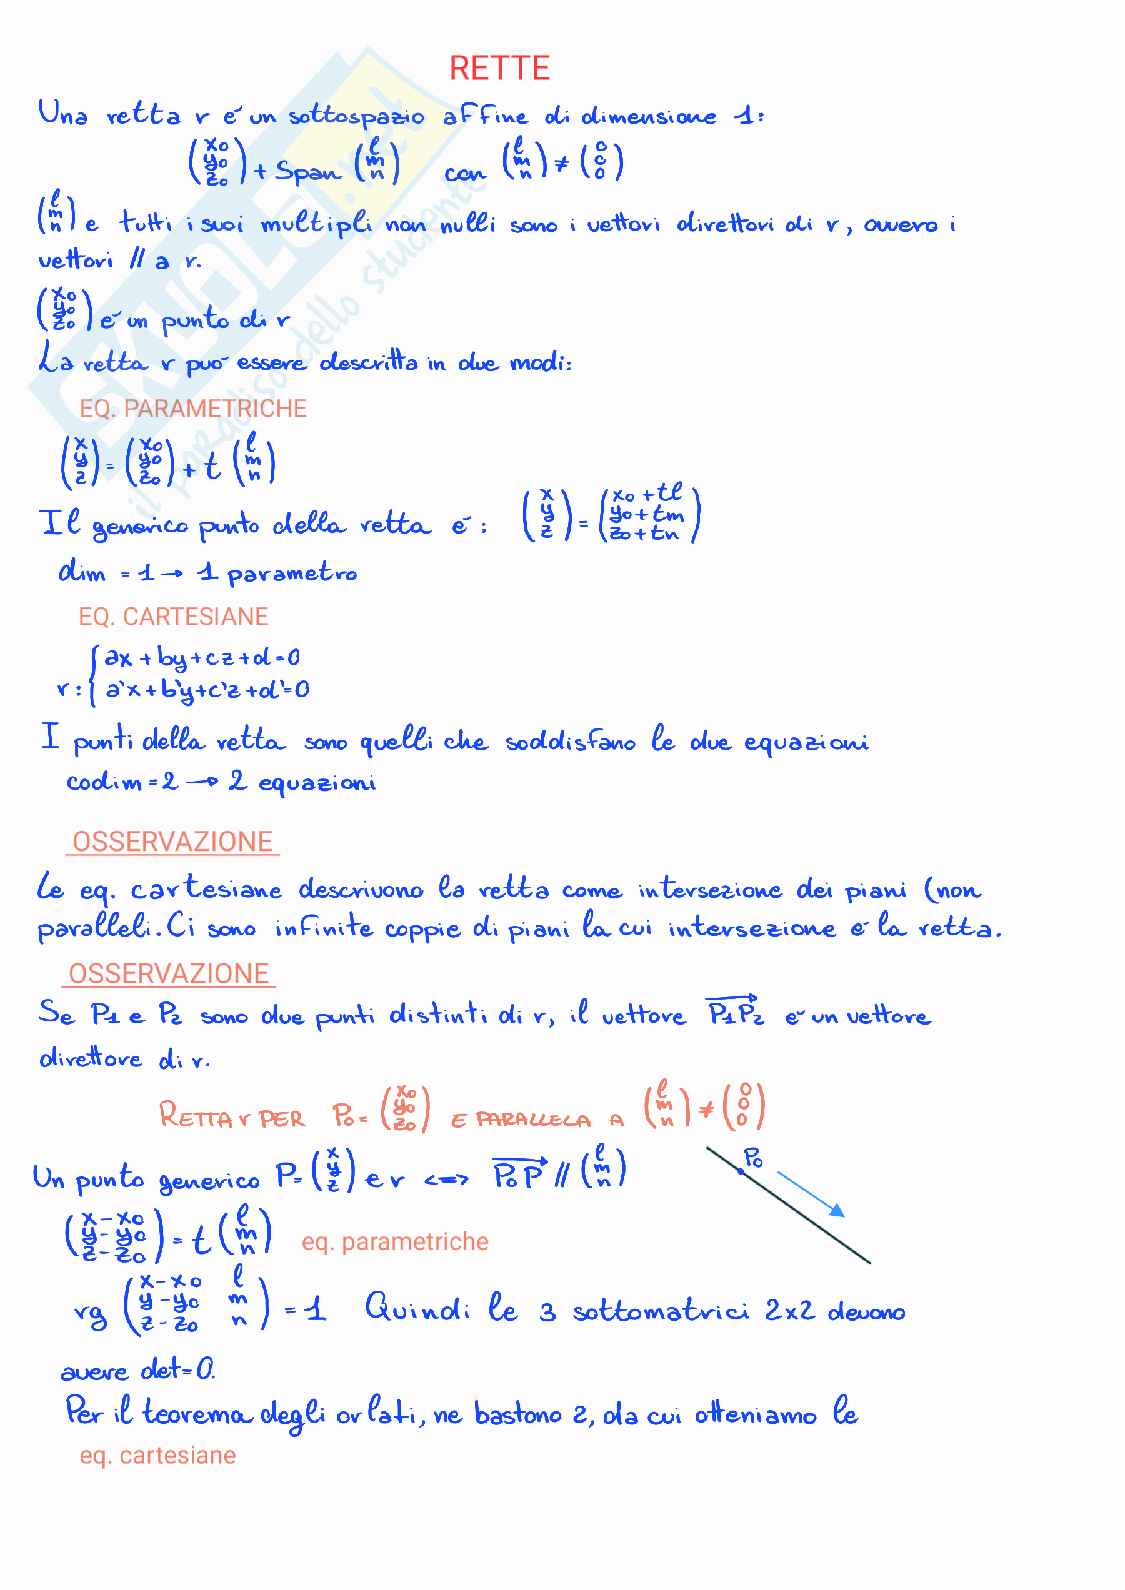 RETTE
Una retta r é un sottospazio affine di dimensione 1:
(x0 y0 z0) + Span (l m n) con (l m n) ≠ (0 0 0)
(l m n) e tutti i suoi multipli non nulli sono i vettori direttori di r, ovvero i
vettori // a r.
(x0 y0 z0) é un punto di r
La retta r puo' essere descritta in due modi:
EQ. PARAMETRICHE
(x y z) = (x0 y0 z0) + t (l m n)
Il generico punto della retta é: (x y z) = (x0+tl y0+tm z0+tn)
dim = 1 → 1 parametro
EQ. CARTESIANE
r: { ax+by+cz+d=0
a'x+b'y+c'z+d'=0
I punti della retta sono quelli che soddisfano le due equazioni
codim = 2 → 2 equazioni
OSSERVAZIONE
Le eq. cartesiane descrivono la retta come intersezione dei piani (non
paralleli. Ci sono infinite coppie di piani la cui intersezione é la retta.
OSSERVAZIONE
Se P1 e P2 sono due punti distinti di r, il vettore P1P2 é un vettore
direttore di r.
RETTA r PER P0 = (x0 y0 z0) E PARALLELA A (l m n) ≠ (0 0 0)
Un punto generico P = (x y z) ∈ r <=> P0P // (l m n)
P0
(x-x0 y-y0 z-z0) = t (l m n) eq. parametriche
rg (x-x0 l y-y0 m z-z0 n) = 1 Quindi le 3 sottomatrici 2x2 devono
avere det=0.
Per il teorema degli orlati, ne bastono 2, da cui otteniamo le
eq. cartesiane
SKUOLA.net
il paradiso dello studente